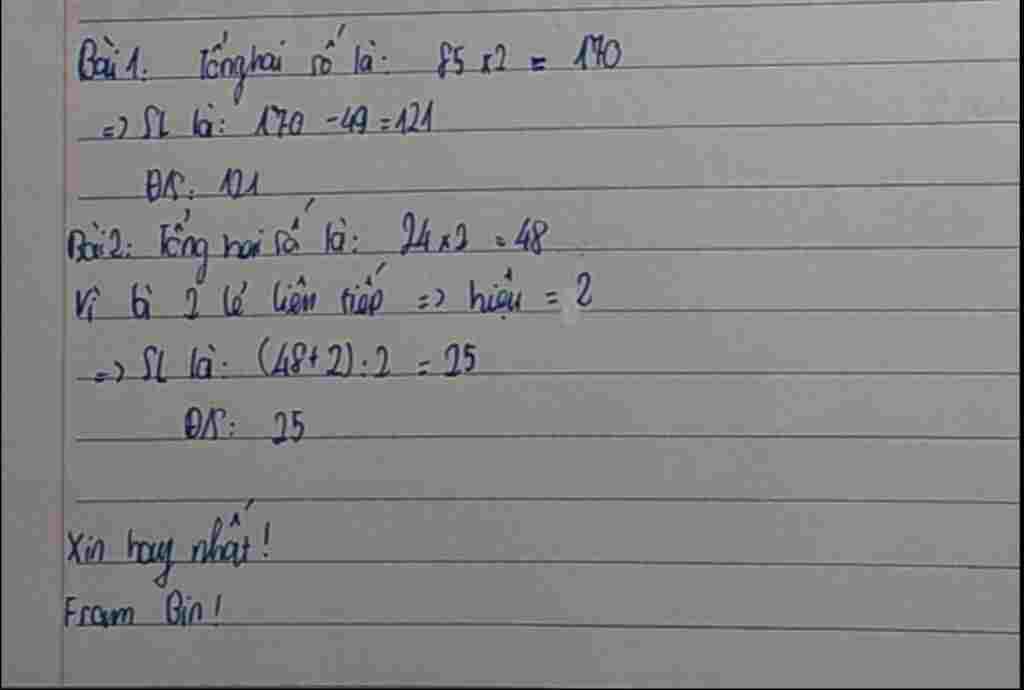 Bài 1: Tổng hai số là: 85 x 2 = 170
=> SL là: 170 - 49 = 121
ĐS: 121
Bài 2: Tổng hai số là: 24 x 2 = 48
Vì là 2 lẻ liên tiếp => hiệu = 2
=> SL là: (48+2):2 = 25
ĐS: 25
Xin hay nhất!
From Bin!